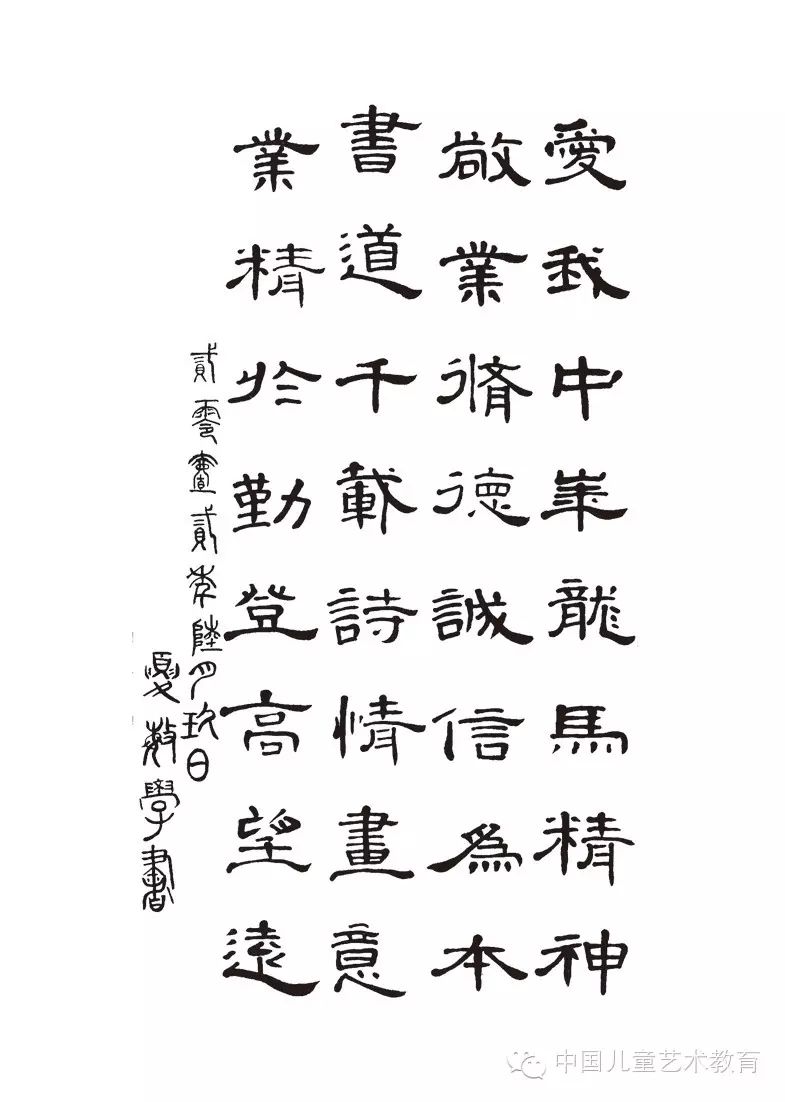 愛我中華龍馬精神
敬業脩德誠信為本
書道千載詩情畫意
業精於勤登高望遠
貳零壹貳年陸月玖日
夏教學書
中国儿童艺术教育